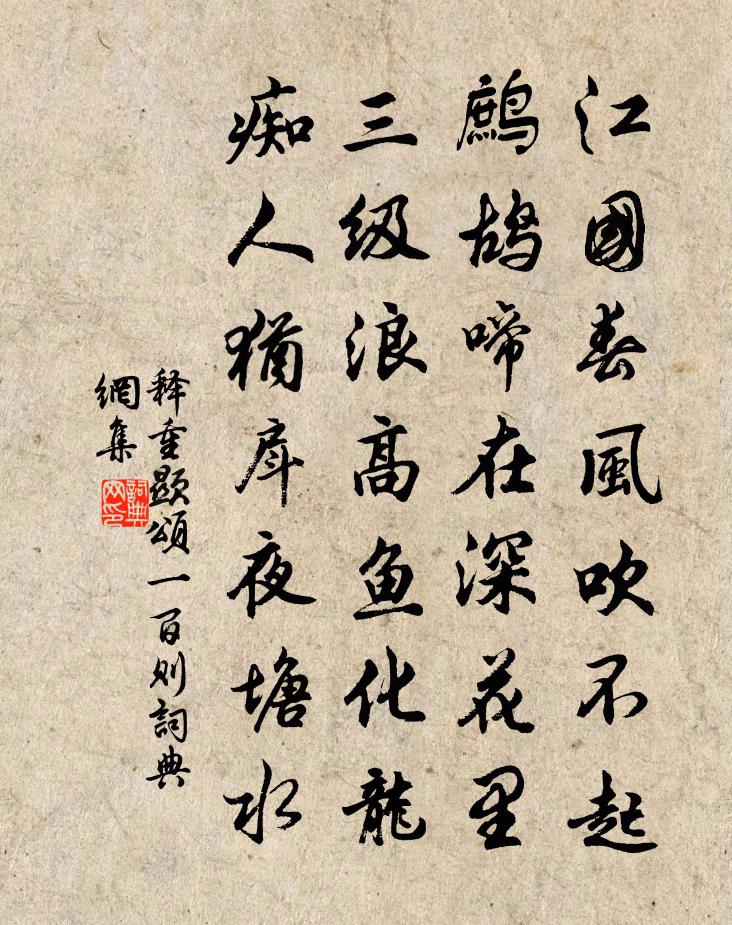 江國春風吹不起
鹧鸪啼在深花里
三级浪高鱼化龍
痴人犹戽夜塘水
释重顕頌一百则詞典
網集
詞典
网印